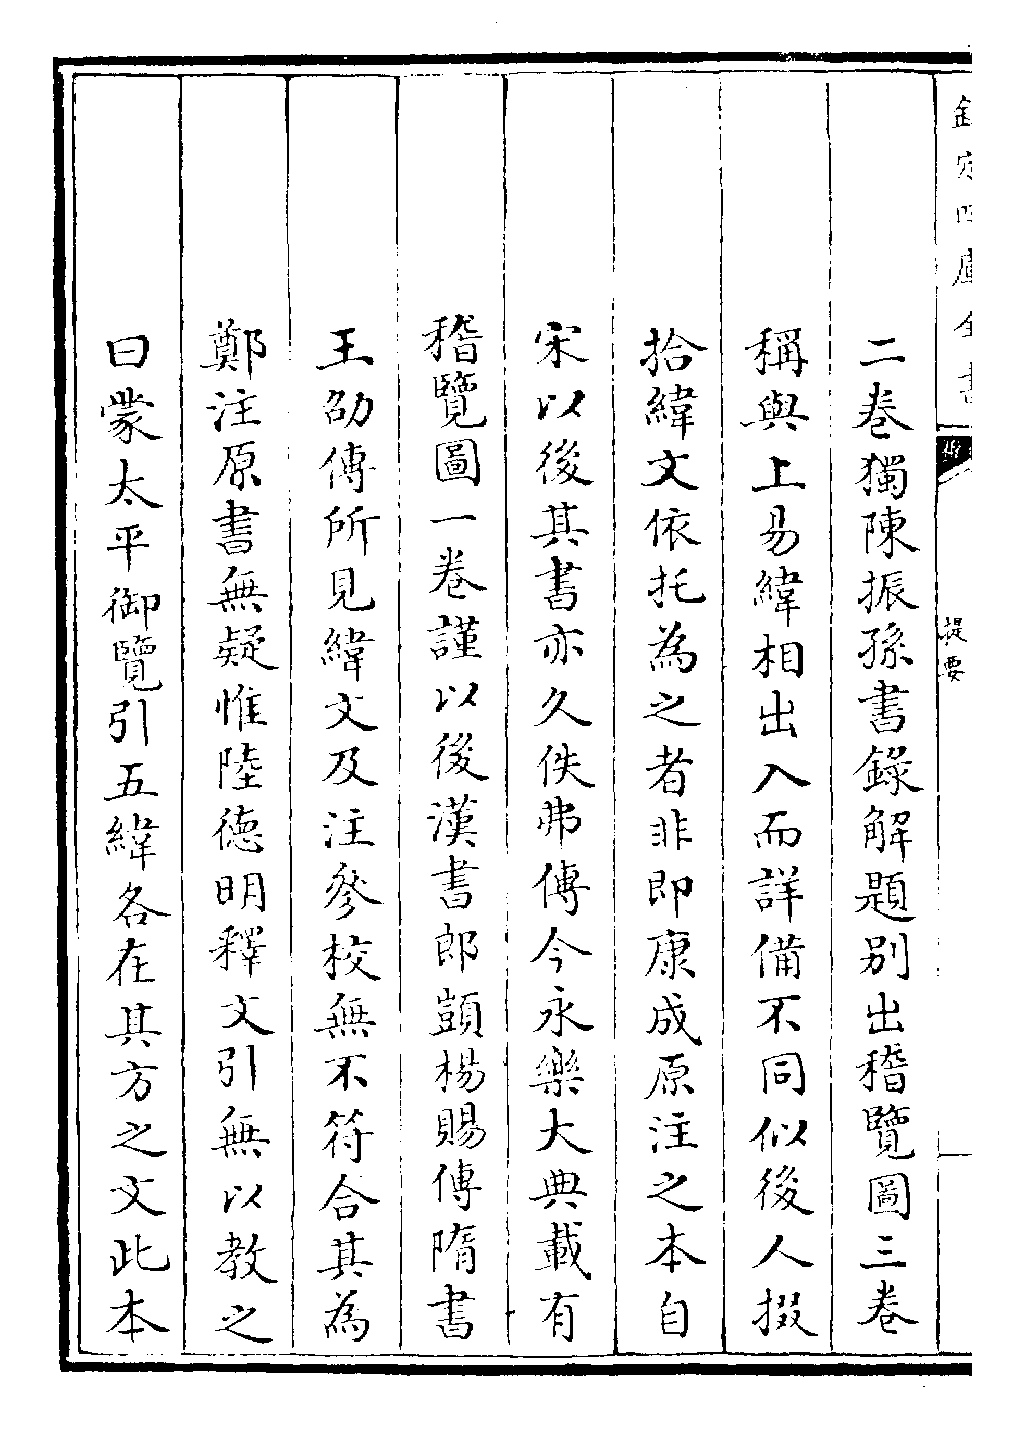 欽定四庫全書
提要
二卷獨陳振孫書錄解題别出稽覽圖三卷
稱與上易緯相出入而詳備不同似後人掇
拾緯文依托為之者非即康成原注之本自
宋以後其書亦久佚弗傳今永樂大典載有
稽覽圖一卷謹以後漢書郎顗楊賜傳隋書
王劭傳所見緯文及注參校無不符合其為
鄭注原書無疑惟陸德明釋文引無以教之
曰蒙太平御覽引五緯各在其方之文此本